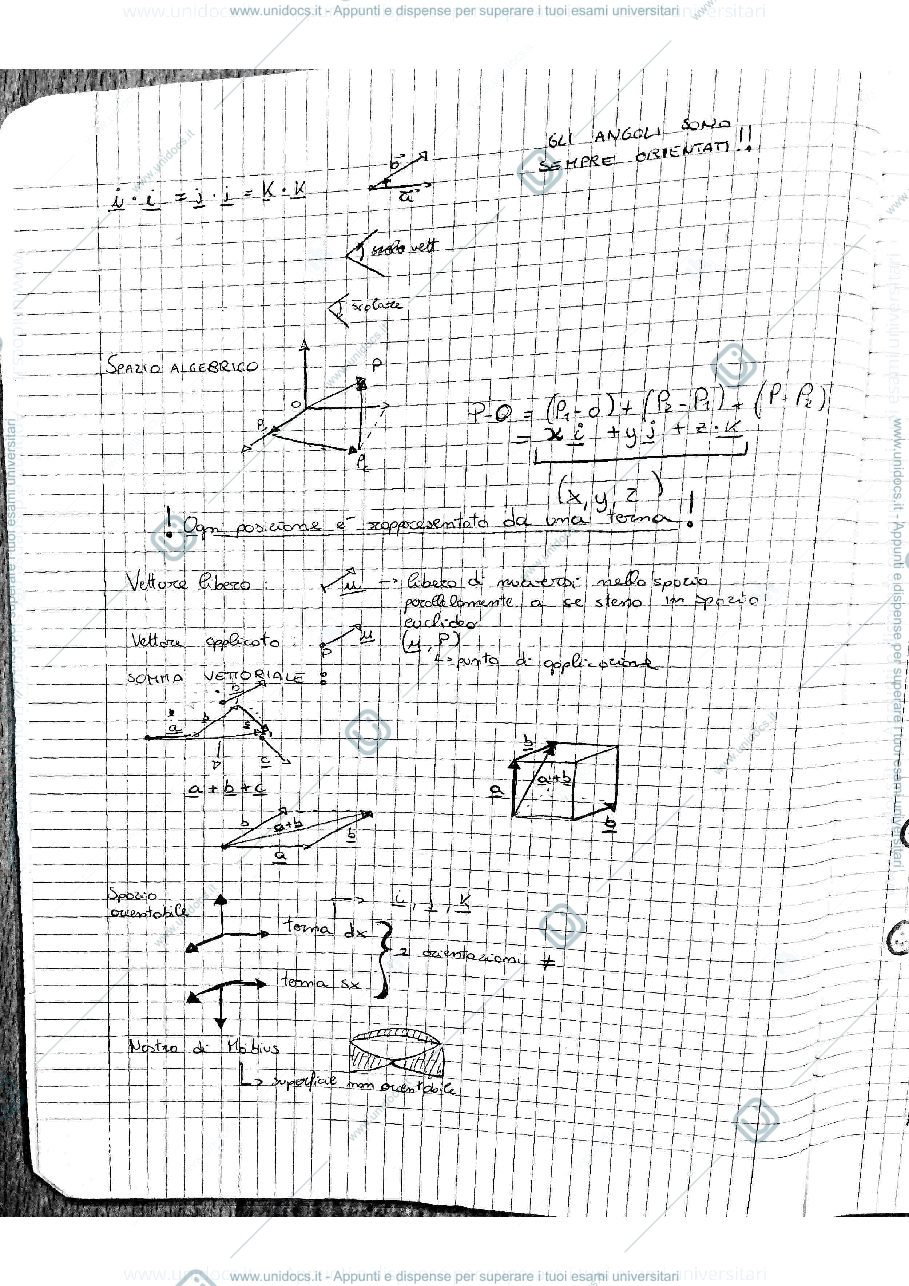 www.unidocs.it - Appunti e dispense per superare i tuoi esami universitari
GLI ANGOLI SONO
SEMPRE ORIENTATI!!
i · i = j · j = k · k
b
a
vett
scalare
SPAZIO ALGEBRICO
P
O
P1
P2
P-O = (P1-O) + (P2-P1) + (P-P2)
= x i + y j + z · k
(x, y, z)
! Ogni posizione è rappresentata da una terna !
Vettore libero : u -> libero di muoversi nello spazio
parallelamente a se stesso in spazio
euclideo
Vettore applicato : P u (u, P)
↳ punto di applicazione
SOMMA VETTORIALE :
b
a b
c
a + b + c
b
a a+b
b
b a+b b
a
Spazio
orientabile
-> i, j, k
terna dx
2 orientazioni ≠
terna sx
Nastro di Mobius
↳ superficie non orientabile
www.unidocs.it - Appunti e dispense per superare i tuoi esami universitari